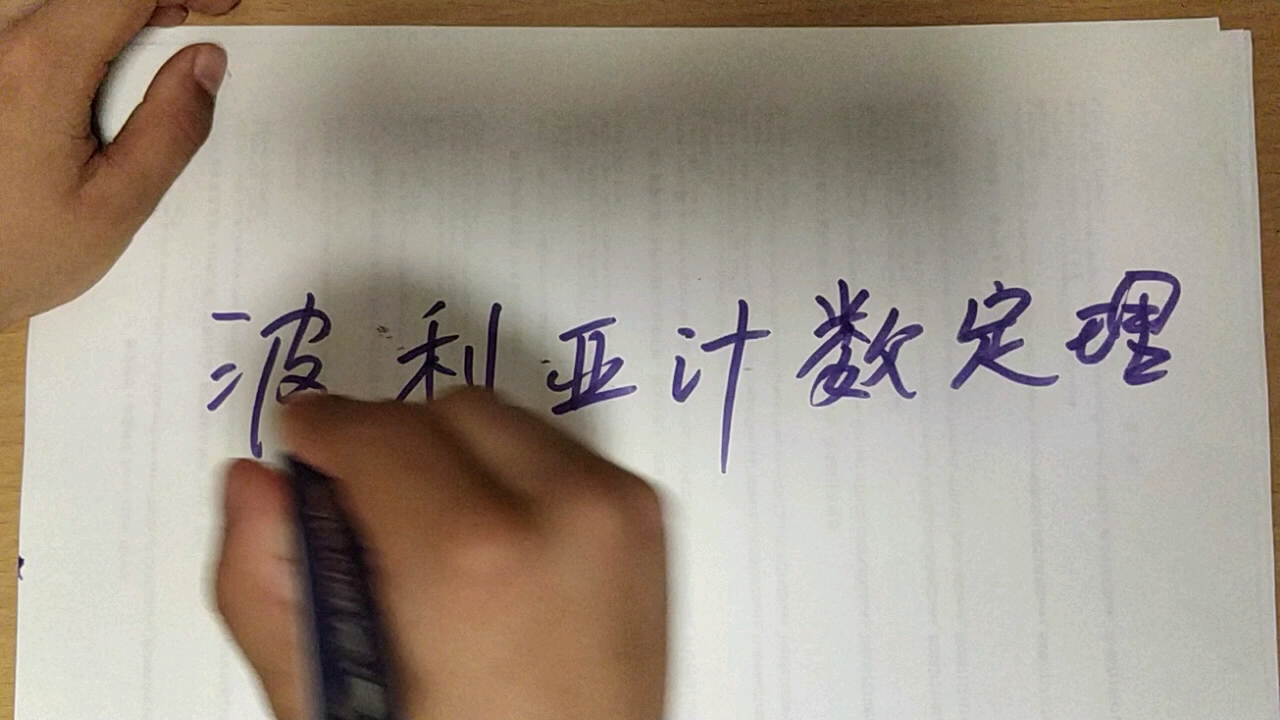 波利亚计数定理